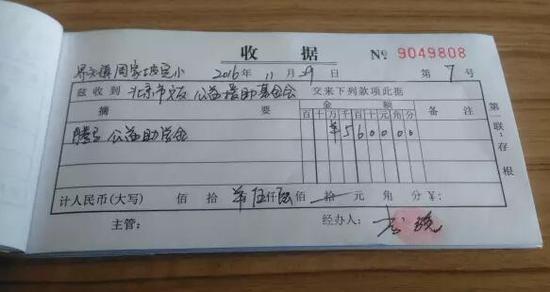 收 据 № 9049808
2016年11月29日 第7号
兹收到 北京市 公益援助基金会 交来下列款项此据
摘 要 金 额 备 注
百十万千百十元角分
腾讯公益助学金 ¥560000
计人民币(大写) 佰 拾 万伍仟陆佰 拾 元 角 分 ¥:
主管: 经办人:
第一联:存根